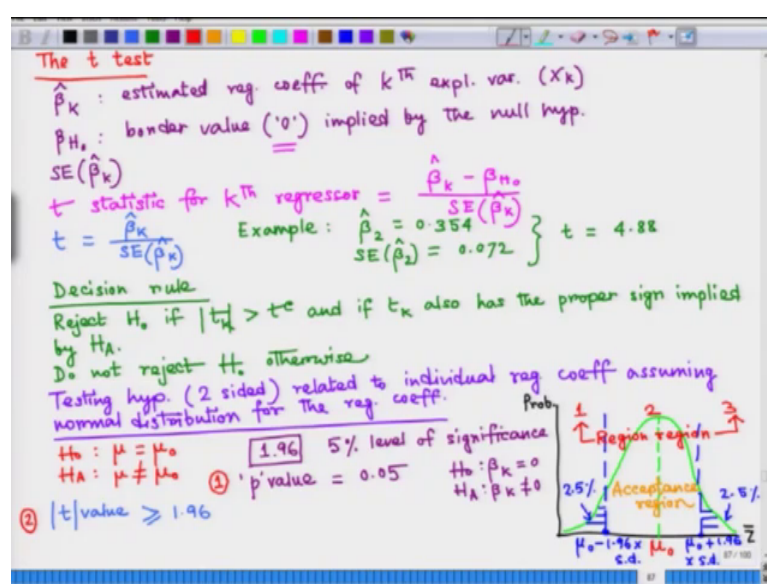 The t test
β̂K : estimated reg. coeff of Kth expl. var. (XK)
βH₀ : border value ('0') implied by the null hyp.
SE(β̂K)
t statistic for Kth regressor = (β̂K − βH₀) / SE(β̂K)
t = β̂K / SE(β̂K) Example : β̂2 = 0.354 } t = 4.88
SE(β̂2) = 0.072
Decision rule
Reject H₀ if |tK| > tᶜ and if tK also has the proper sign implied
by HA.
Do not reject H₀ otherwise
Testing hyp. (2 sided) related to individual reg coeff assuming
normal distribution for the reg. coeff.
H₀ : μ = μ₀
HA : μ ≠ μ₀
1.96 5% level of significance
① 'p' value = 0.05
H₀ : βK = 0
HA : βK ≠ 0
② |t| value ⩾ 1.96
Prob.
1 2 3
Region region
2.5% Acceptance region 2.5%
μ₀ − 1.96 × s.d. μ₀ μ₀ + 1.96 × s.d. Z
87 / 100
87